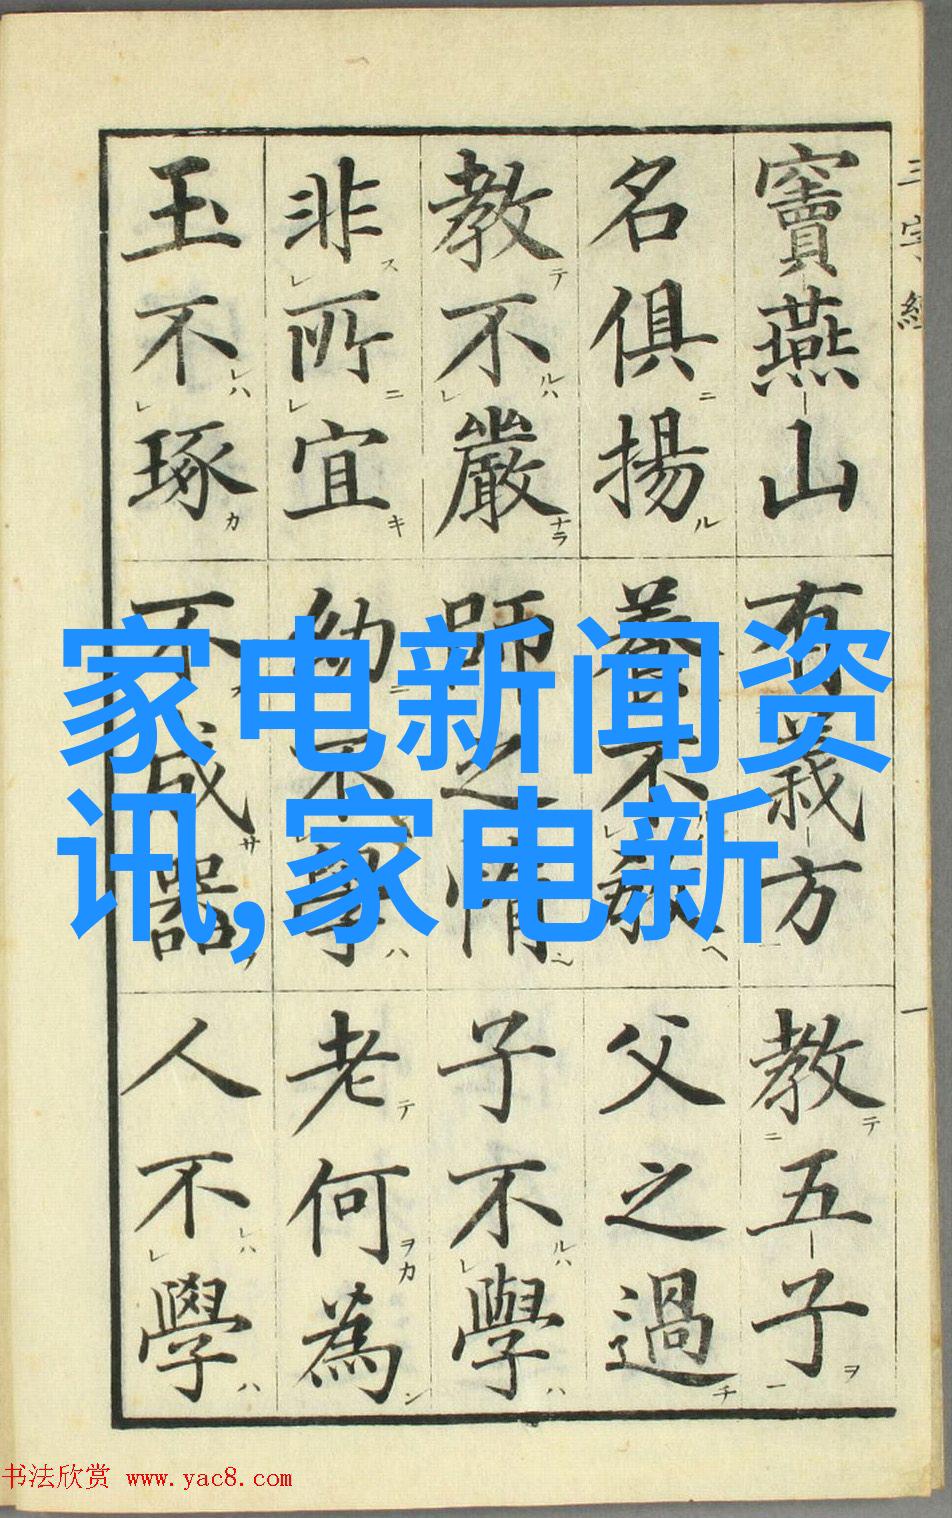 三字經
竇燕山有義方教五子
名俱揚養不教父之過
教不嚴師之惰子不學
非所宜幼不學老何為
玉不琢不成器人不學
一
家电新闻资
讯,家电新
书法欣赏 www.yac8.com